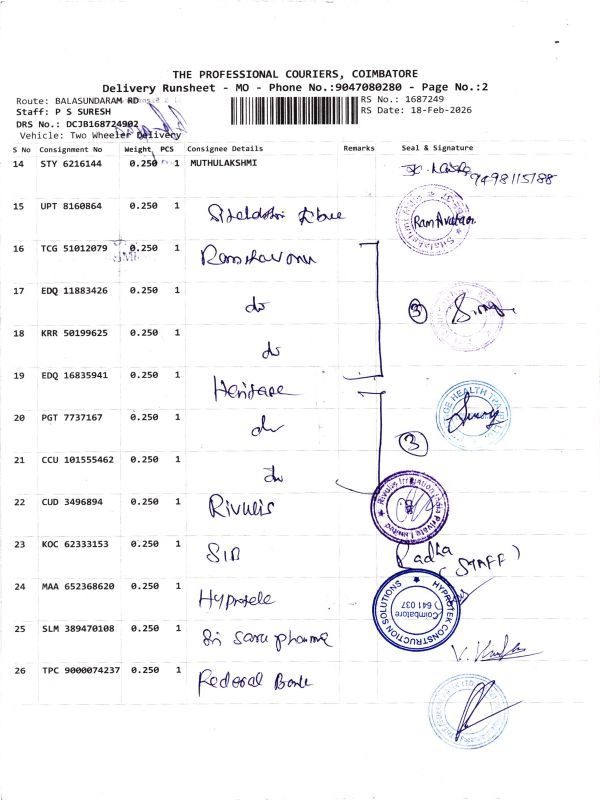 THE PROFESSIONAL COURIERS, COIMBATORE
Delivery Runsheet - MO - Phone No.:9047080280 - Page No.:2
Route: BALASUNDARAM RD
RS No.: 1687249
Staff: P S SURESH
RS Date: 18-Feb-2026
DRS No.: DCJB168724902
Vehicle: Two Wheeler Delivery
S No Consignment No Weight PCS Consignee Details Remarks Seal & Signature
14 STY 6216144 0.250 1 MUTHULAKSHMI
9498115788
15 UPT 8160864 0.250 1
Ram Avatar
16 TCG 51012079 0.250 1
17 EDQ 11883426 0.250 1 do
3
18 KRR 50199625 0.250 1 do
19 EDQ 16835941 0.250 1 Heritage
20 PGT 7737167 0.250 1 do
3
21 CCU 101555462 0.250 1 do
22 CUD 3496894 0.250 1 Rivulis
Rivulis Irrigation India Private Limited
23 KOC 62333153 0.250 1 SIB
Radha
(STAFF)
24 MAA 652368620 0.250 1
HYPROTEK CONSTRUCTION SOLUTIONS
Coimbatore
641 037
25 SLM 389470108 0.250 1 Sri Saru pharma
26 TPC 9000074237 0.250 1 Federal Bank